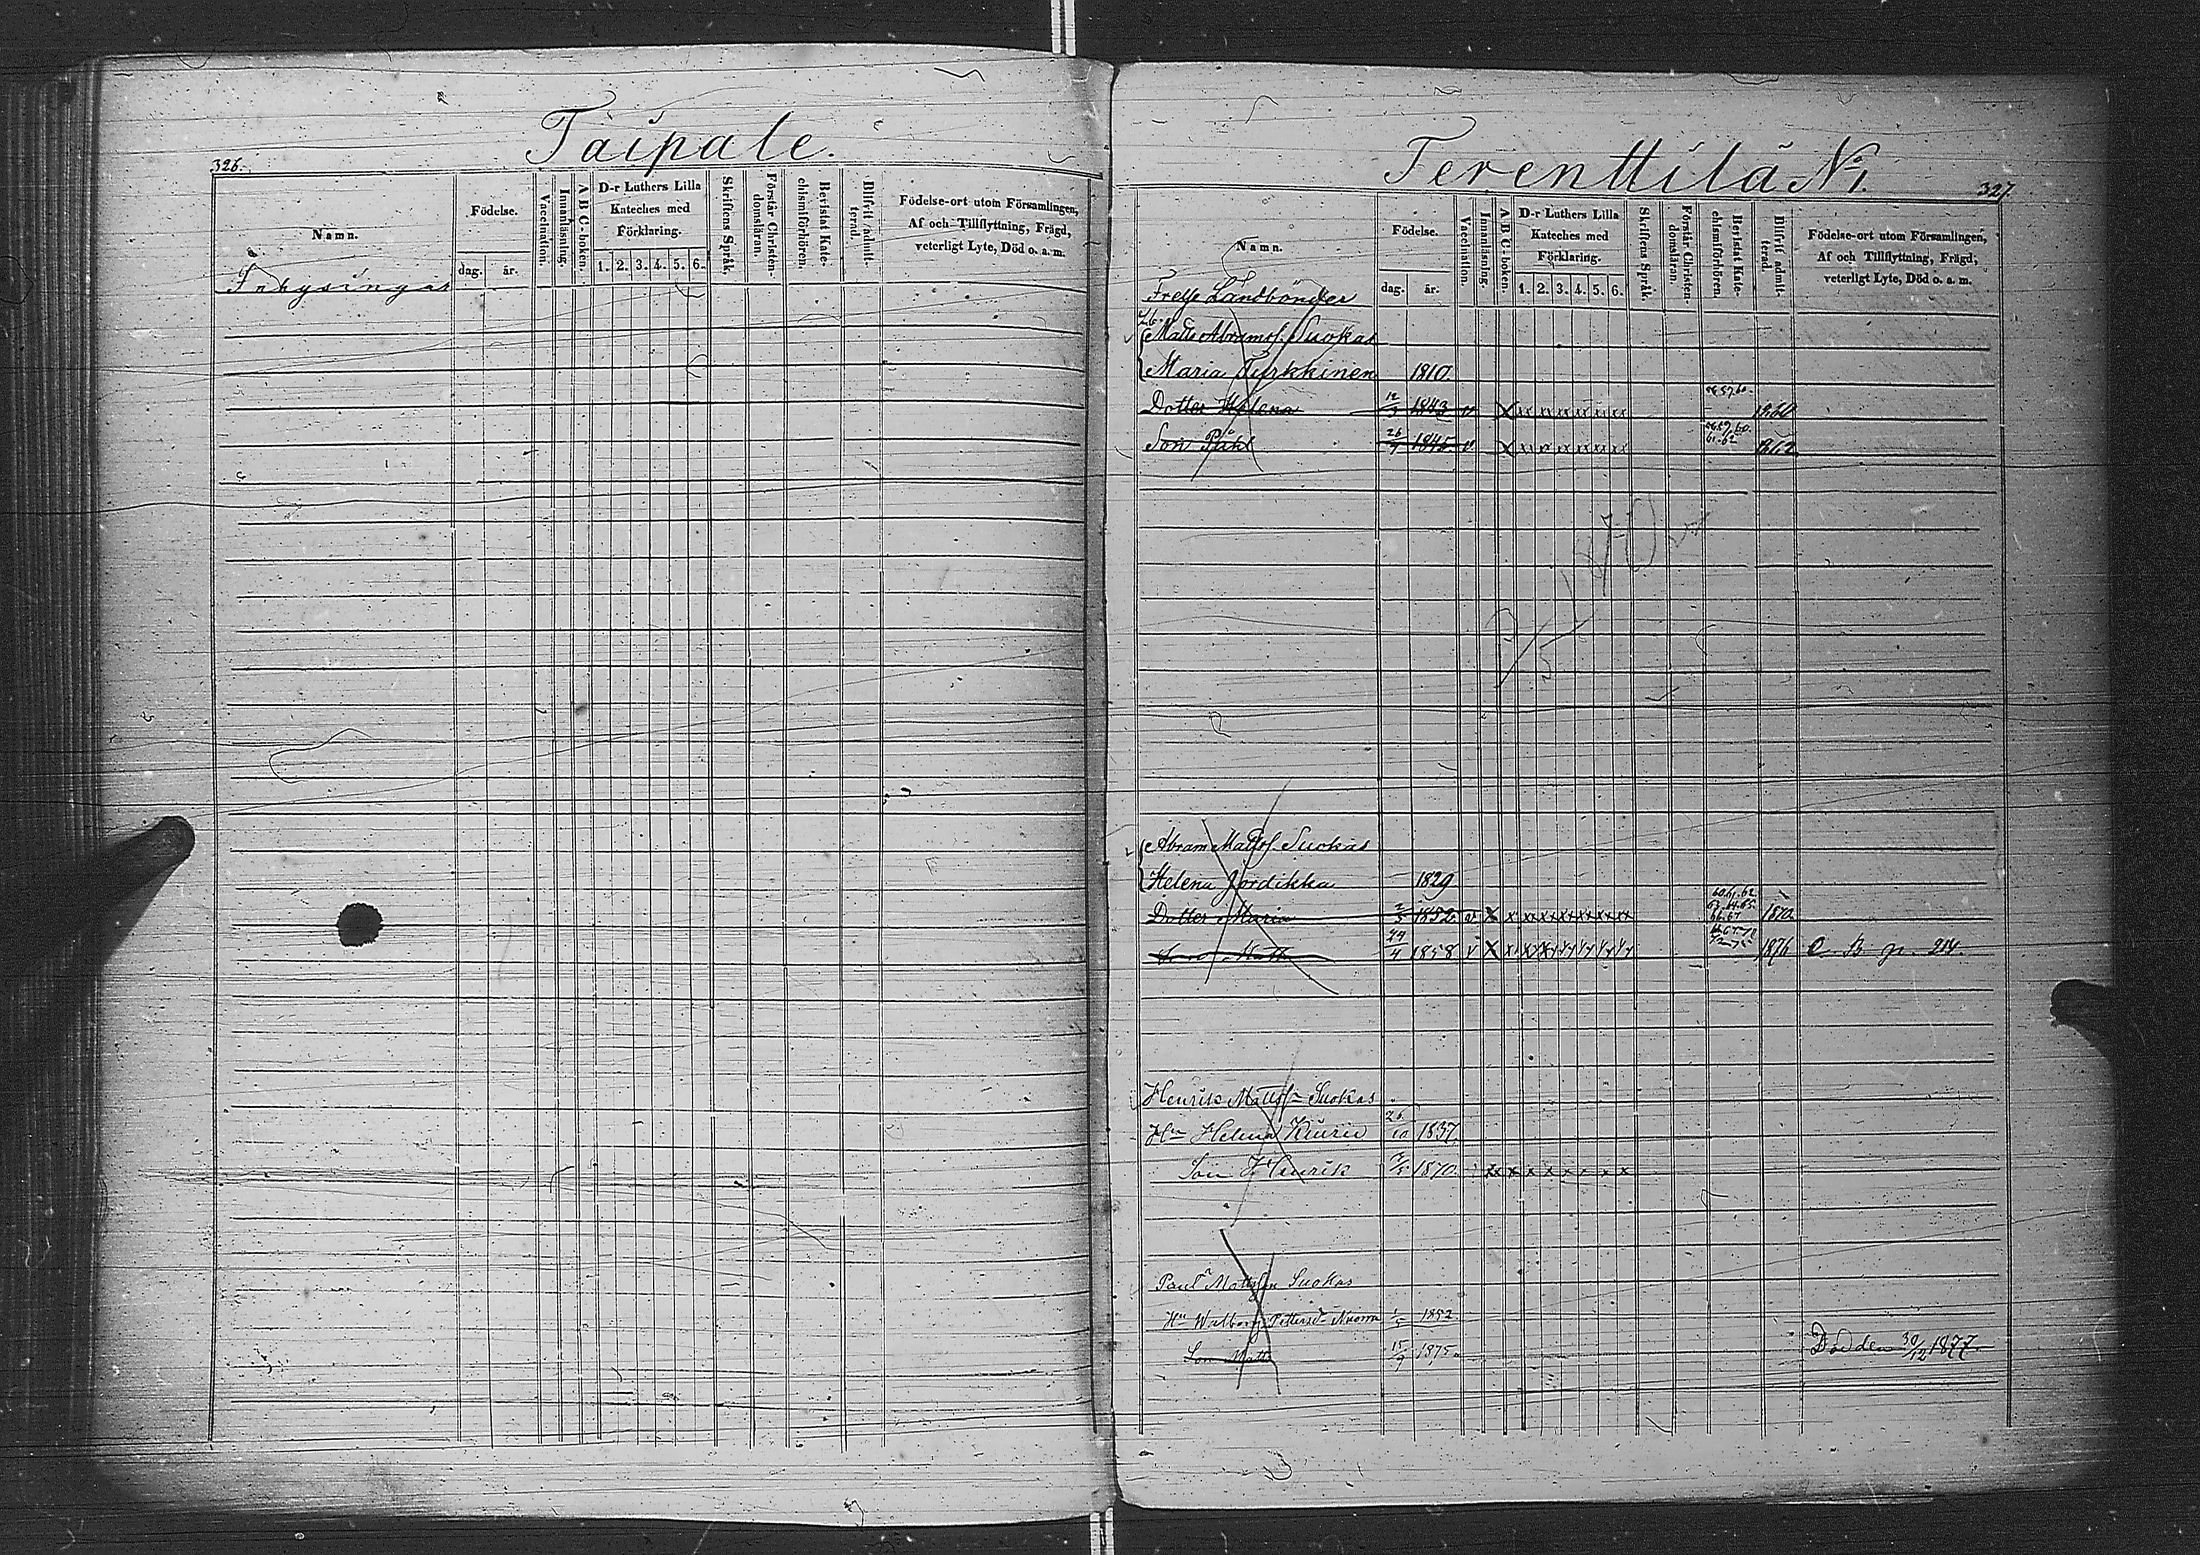 Taipale.
326.
Namn.
Födelse.
dag. år.
Vaccination.
Innanläsning.
A B C-boken.
D-r Luthers Lilla
Kateches med
Förklaring.
1. 2. 3. 4. 5. 6.
Skriftens Språk.
Förstår Christen-
domsläran.
Bevistat Kate-
chismiförhören.
Blifvit admit-
terad.
Födelse-ort utom Församlingen,
Af och Tillflyttning, Frägd,
veterligt Lyte, Död o. a. m.
Inhysingar
Terenttilä N:1.
327
Namn.
Födelse.
dag. år.
Vaccination.
Innanläsning.
A B C-boken.
D-r Luthers Lilla
Kateches med
Förklaring.
1. 2. 3. 4. 5. 6.
Skriftens Språk.
Förstår Christen-
domsläran.
Bevistat Kate-
chismiförhören.
Blifvit admit-
terad.
Födelse-ort utom Församlingen,
Af och Tillflyttning, Frägd,
veterligt Lyte, Död o. a. m.
Landbönder
Matts Abramss. Suokas
Maria Turkkinen 1810.
Dotter Helena 12/3 1843 v x x x x x x x x 1860
Son Påhl 26/9 1845 v x x x x x x x x 1862
Abram Mattss Suokas
Helena Jordikka 1829
Dotter Maria 2/3 1852 v x x x x x x x x 1870
Son Matts 29/4 1858 v x x x x x x x x 1876 C. B. p. 214.
Henrik Mattss Suokas
Hn Helena Kiuru 26/10 1837
Son Henrik 1870 x x x x x x x x
Paul Mattsson Suokas
Hn Walborg Pettersd. 1852
Son Matts 15/9 1875 Död den 30/12 1877.